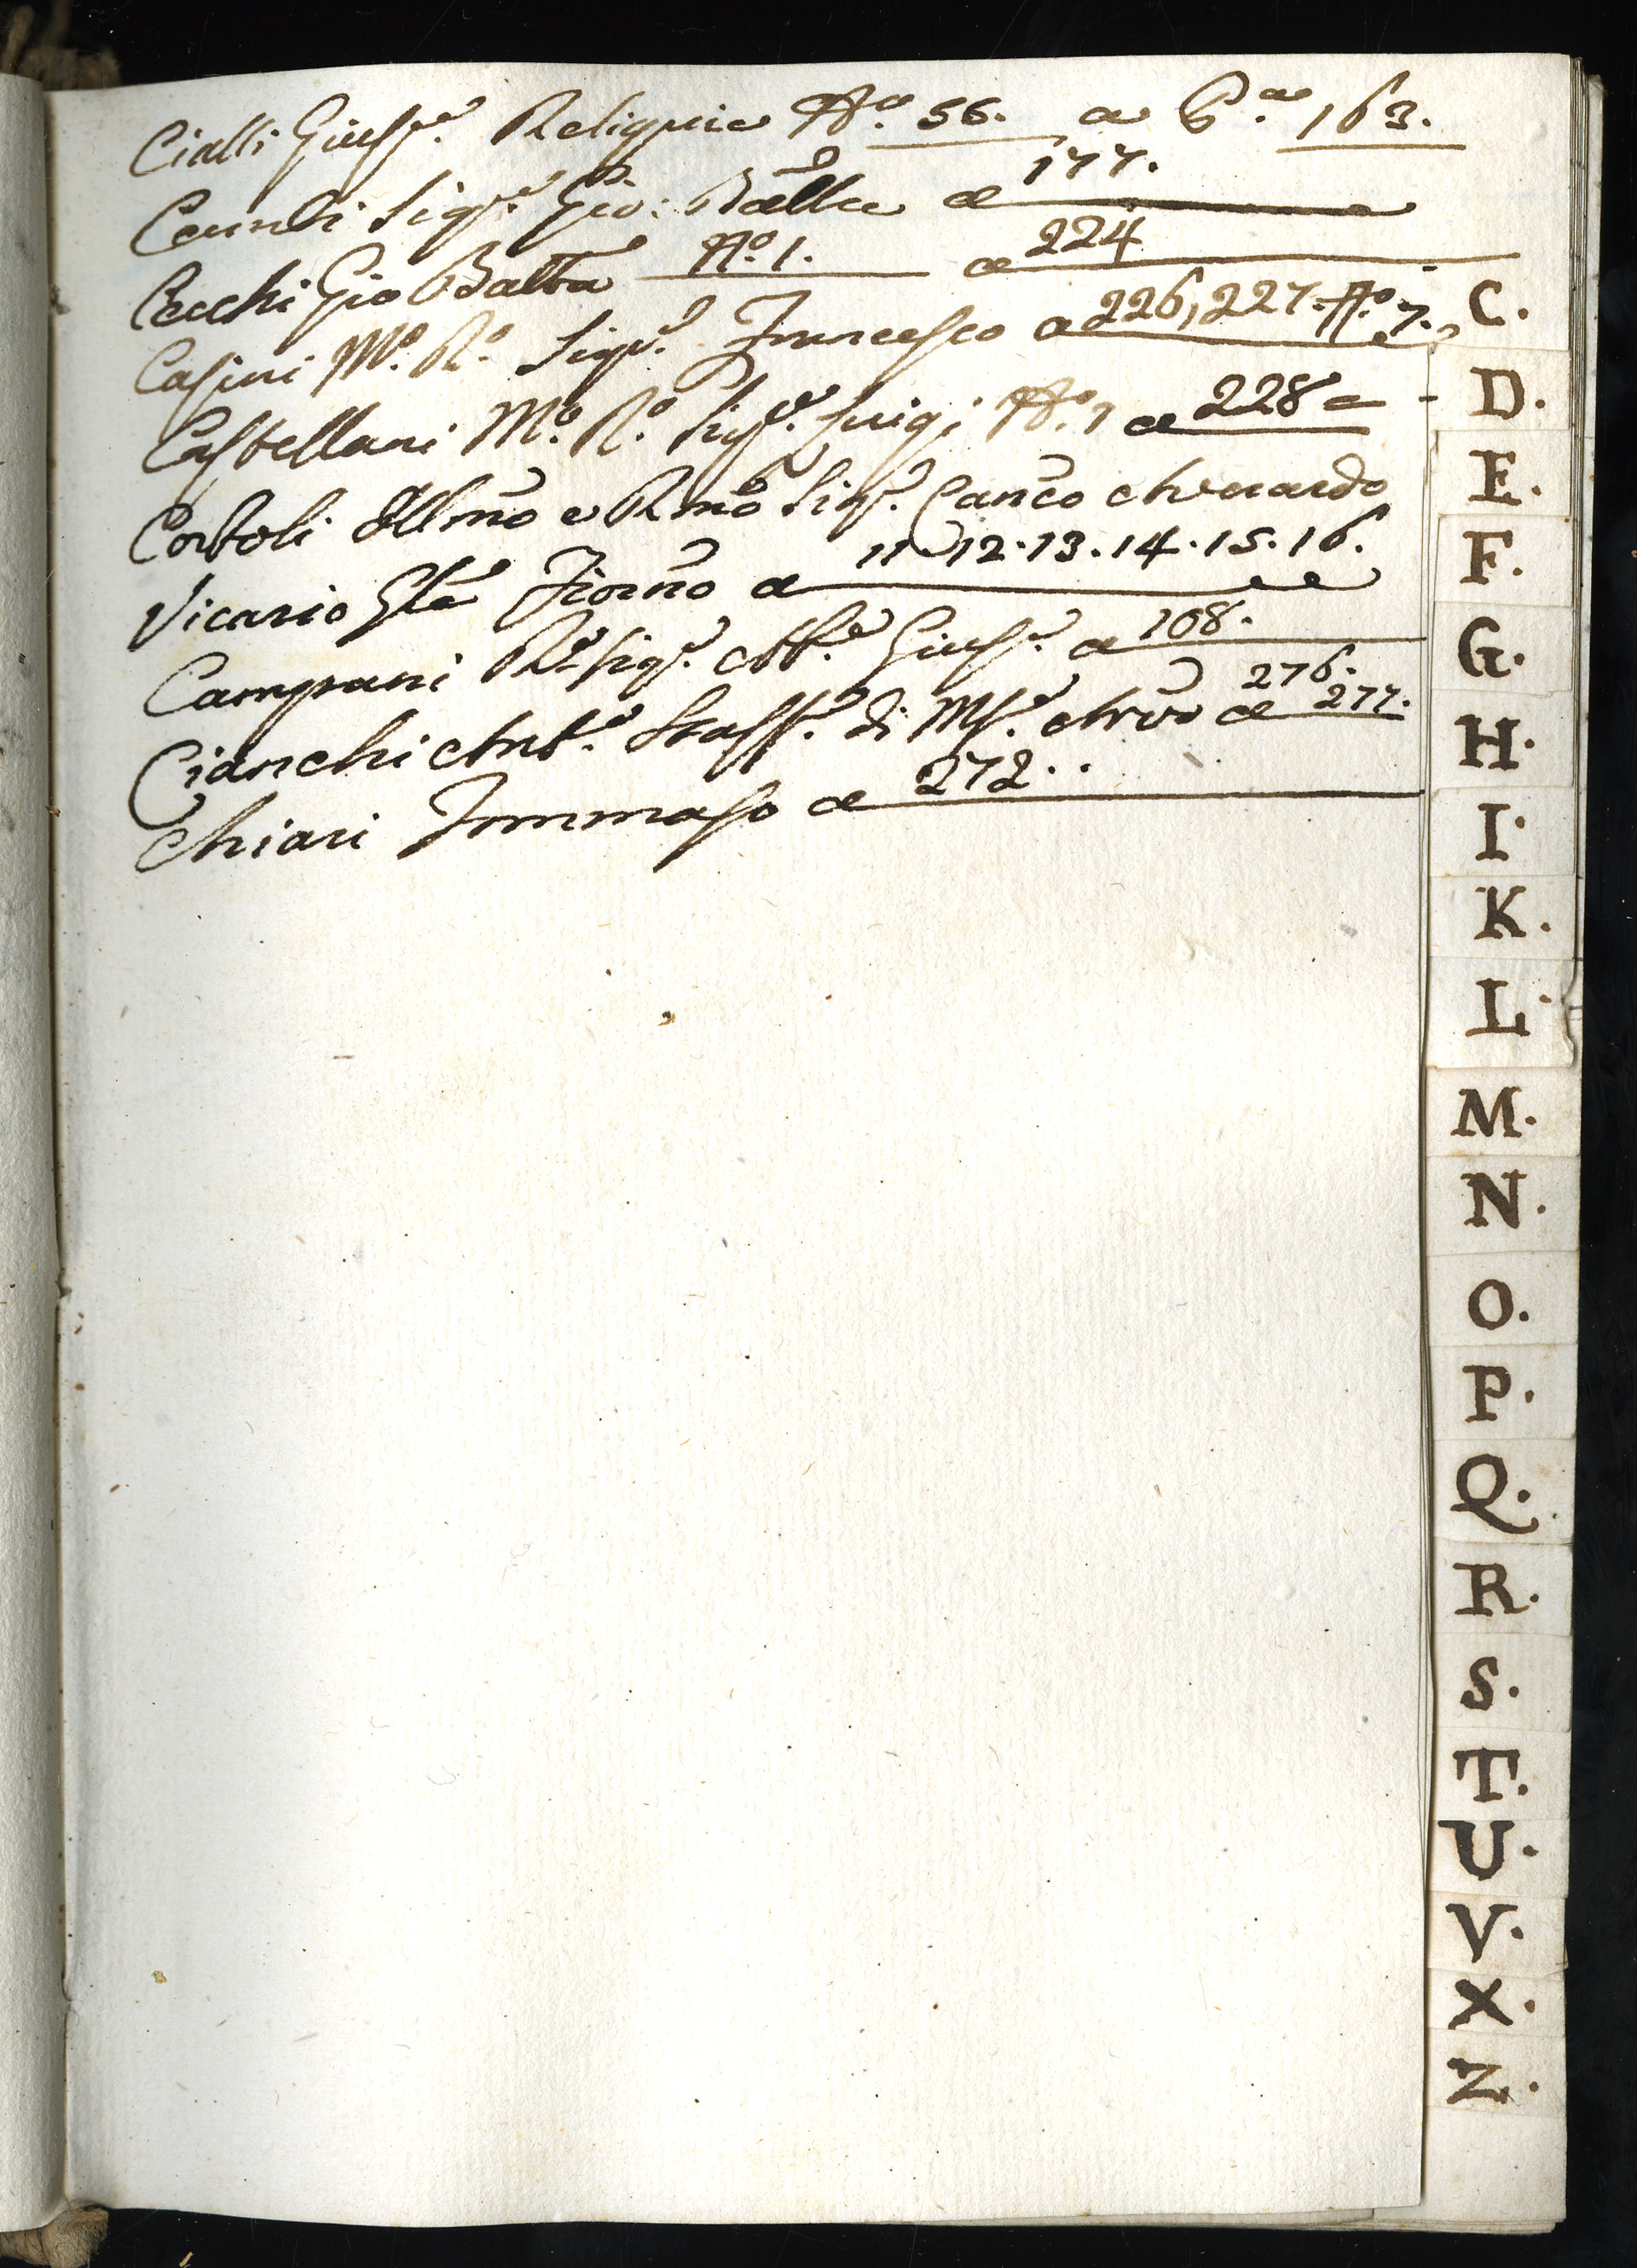 Cialli Giuspe. Reliquie No. 56. a Pa. 163.
Sigr. Gio: Batta a 177.
Cecchi Gio Batta No. 1. a 224
Casini Mo. Ro. Sigr. Francesco a 226, 227. No. 7.
Castellani Mo. Ro. Sigr. Luigi No. 1 a 228
Cortoli Illmo e Rmo Sigr. Canco Averardo
Vicario Gle Fiorno a 11 12. 13. 14. 15. 16.
Campani Sigr. Giuse. a 108.
Cianchi Ant. Staffe. di Mse. Arvo a 276. 277.
Chiari Tommaso a 272..
C.
D.
E.
F.
G.
H.
I.
K.
L.
M.
N.
O.
P.
Q.
R.
S.
T.
U.
V.
X.
Z.